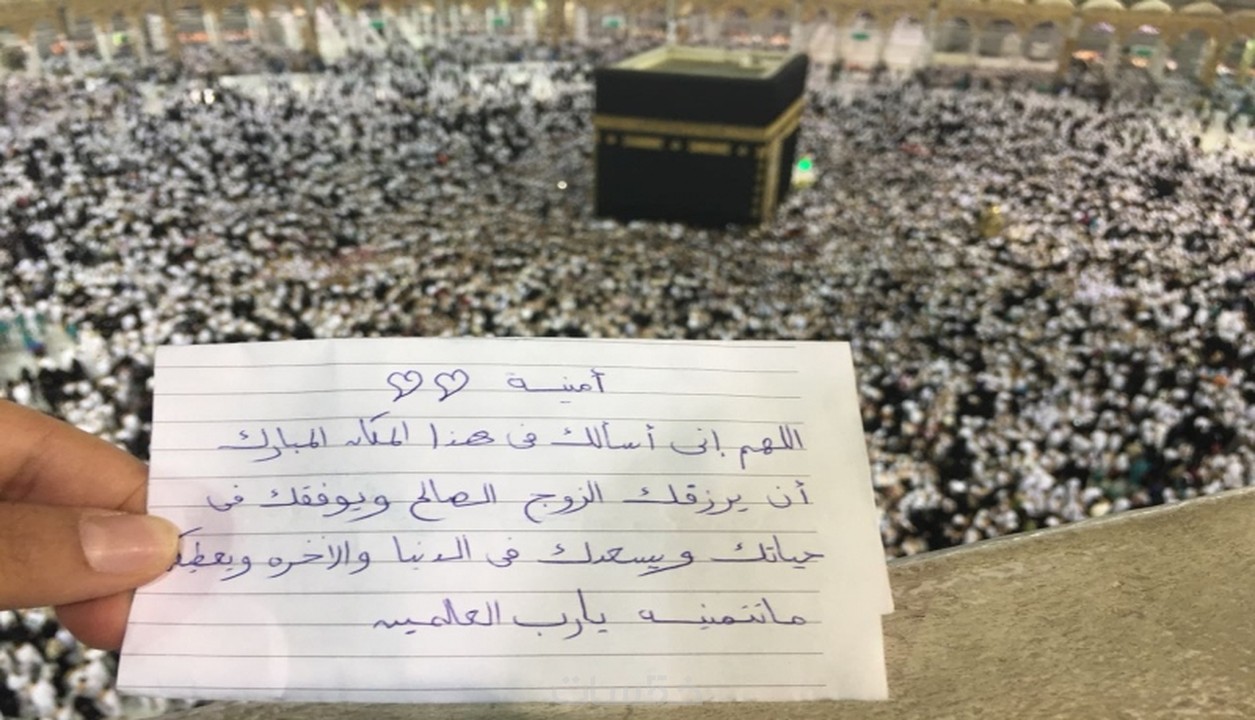 أمنيــة
اللهم إنى أسألك فى هذا المكان المبارك
أن يرزقك الزوج الصالح ويوفقك فى
حياتك ويسعدك فى الدنيا والاخره ويعطيك
ماتتمنيــه يارب العالمين